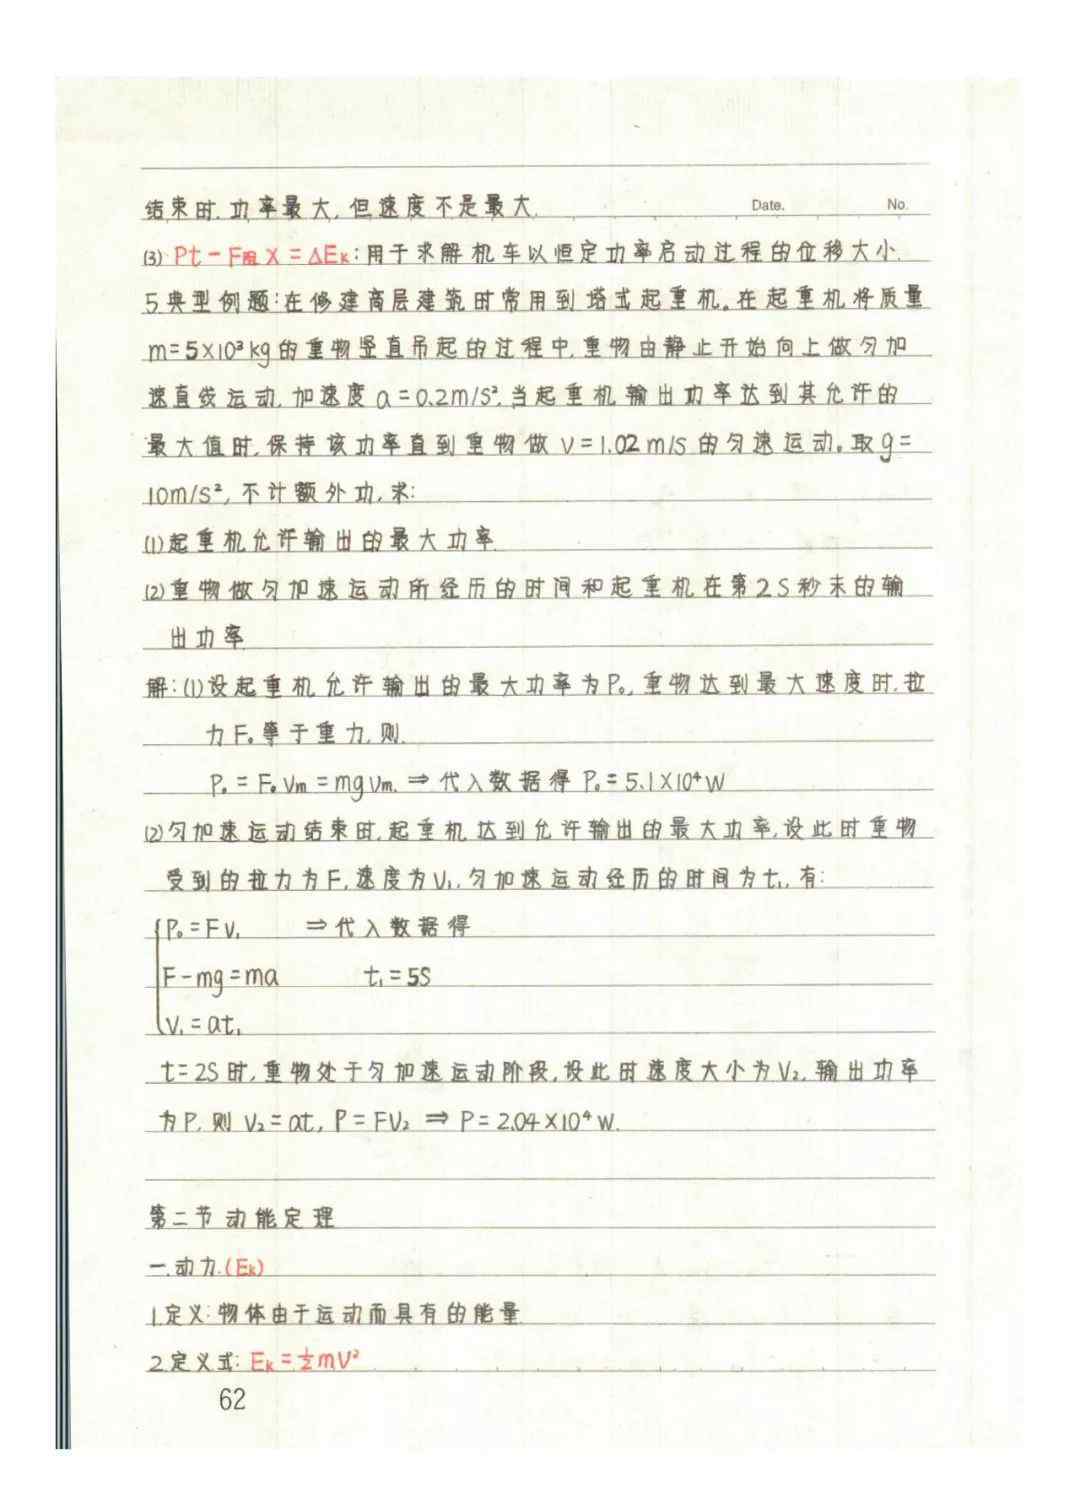 结束时,功率最大,但速度不是最大. Date. No.
(3) Pt-F阻X=ΔEk:用于求解机车以恒定功率启动过程的位移大小.
5.典型例题:在修建高层建筑时常用到塔式起重机。在起重机将质量
m=5×10³kg的重物竖直吊起的过程中,重物由静止开始向上做匀加
速直线运动,加速度a=0.2m/s²,当起重机输出功率达到其允许的
最大值时,保持该功率直到重物做v=1.02m/s的匀速运动。取g=
10m/s²,不计额外功,求:
(1)起重机允许输出的最大功率.
(2)重物做匀加速运动所经历的时间和起重机在第2S秒末的输
出功率
解:(1)设起重机允许输出的最大功率为P₀,重物达到最大速度时,拉
力F₀等于重力,则.
P₀=F₀vm=mgvm.⇒代入数据得P₀=5.1×10⁴W
(2)匀加速运动结束时,起重机达到允许输出的最大功率,设此时重物
受到的拉力为F,速度为V₁,匀加速运动经历的时间为t₁,有:
P₀=FV₁ ⇒代入数据得
F-mg=ma t₁=5S
V₁=at₁
t=2S时,重物处于匀加速运动阶段,设此时速度大小为V₂,输出功率
为P,则V₂=at,P=FV₂⇒P=2.04×10⁴W.
第二节动能定理
一.动力.(Ek)
1.定义:物体由于运动而具有的能量
2.定义式:Ek=½mV²
62